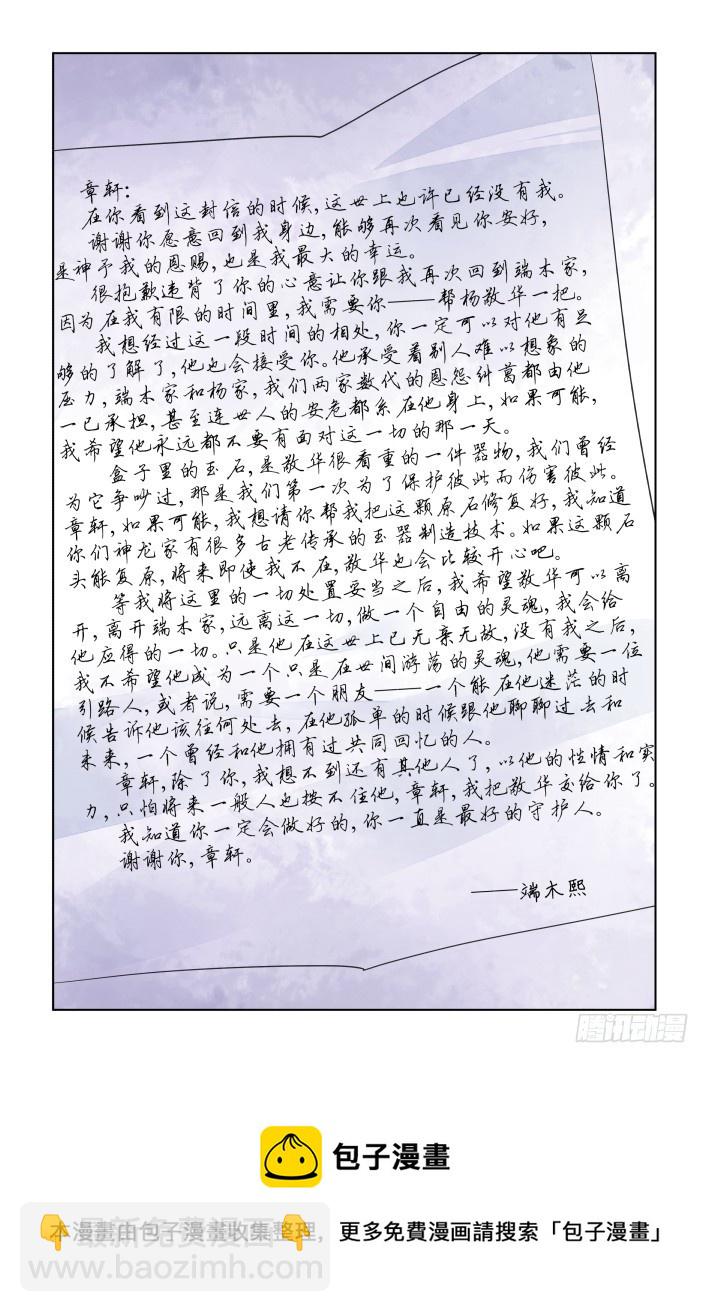 章轩：
在你看到这封信的时候，这世上也许已经没有我。
谢谢你愿意回到我身边，能够再次看见你安好，
是神予我的恩赐，也是我最大的幸运。
很抱歉违背了你的心意让你跟我再次回到端木家，
因为在我有限的时间里，我需要你——帮杨敬华一把。
我想经过这一段时间的相处，你一定可以对他有足
够的了解了，他也会接受你。他承受着别人难以想象的
压力，端木家和杨家，我们两家数代的恩怨纠葛都由他
一已承担，甚至连世人的安危都系在他身上，如果可能，
我希望他永远都不要有面对这一切的那一天。
盒子里的玉石，是敬华很看重的一件器物，我们曾经
为它争吵过，那是我们第一次为了保护彼此而伤害彼此。
章轩，如果可能，我想请你帮我把这颗原石修复好，我知道
你们神龙家有很多古老传承的玉器制造技术。如果这颗石
头能复原，将来即使我不在，敬华也会比较开心吧。
等我将这里的一切处置妥当之后，我希望敬华可以离
开，离开端木家，远离这一切，做一个自由的灵魂，我会给
他应得的一切。只是他在这世上已无亲无故，没有我之后，
我不希望他成为一个只是在世间游荡的灵魂，他需要一位
引路人，或者说，需要一个朋友——一个能在他迷茫的时
候告诉他该往何处去，在他孤单的时候跟他聊聊过去和
未来，一个曾经和他拥有过共同回忆的人。
章轩，除了你，我想不到还有其他人了，以他的性情和实
力，只怕将来一般人也按不住他，章轩，我把敬华交给你了。
我知道你一定会做好的，你一直是最好的守护人。
谢谢你，章轩。
——端木熙
腾讯动漫
包子漫畫
本漫畫由包子漫畫收集整理，更多免費漫画請搜索「包子漫畫」
最新免費漫画
www.baozimh.com